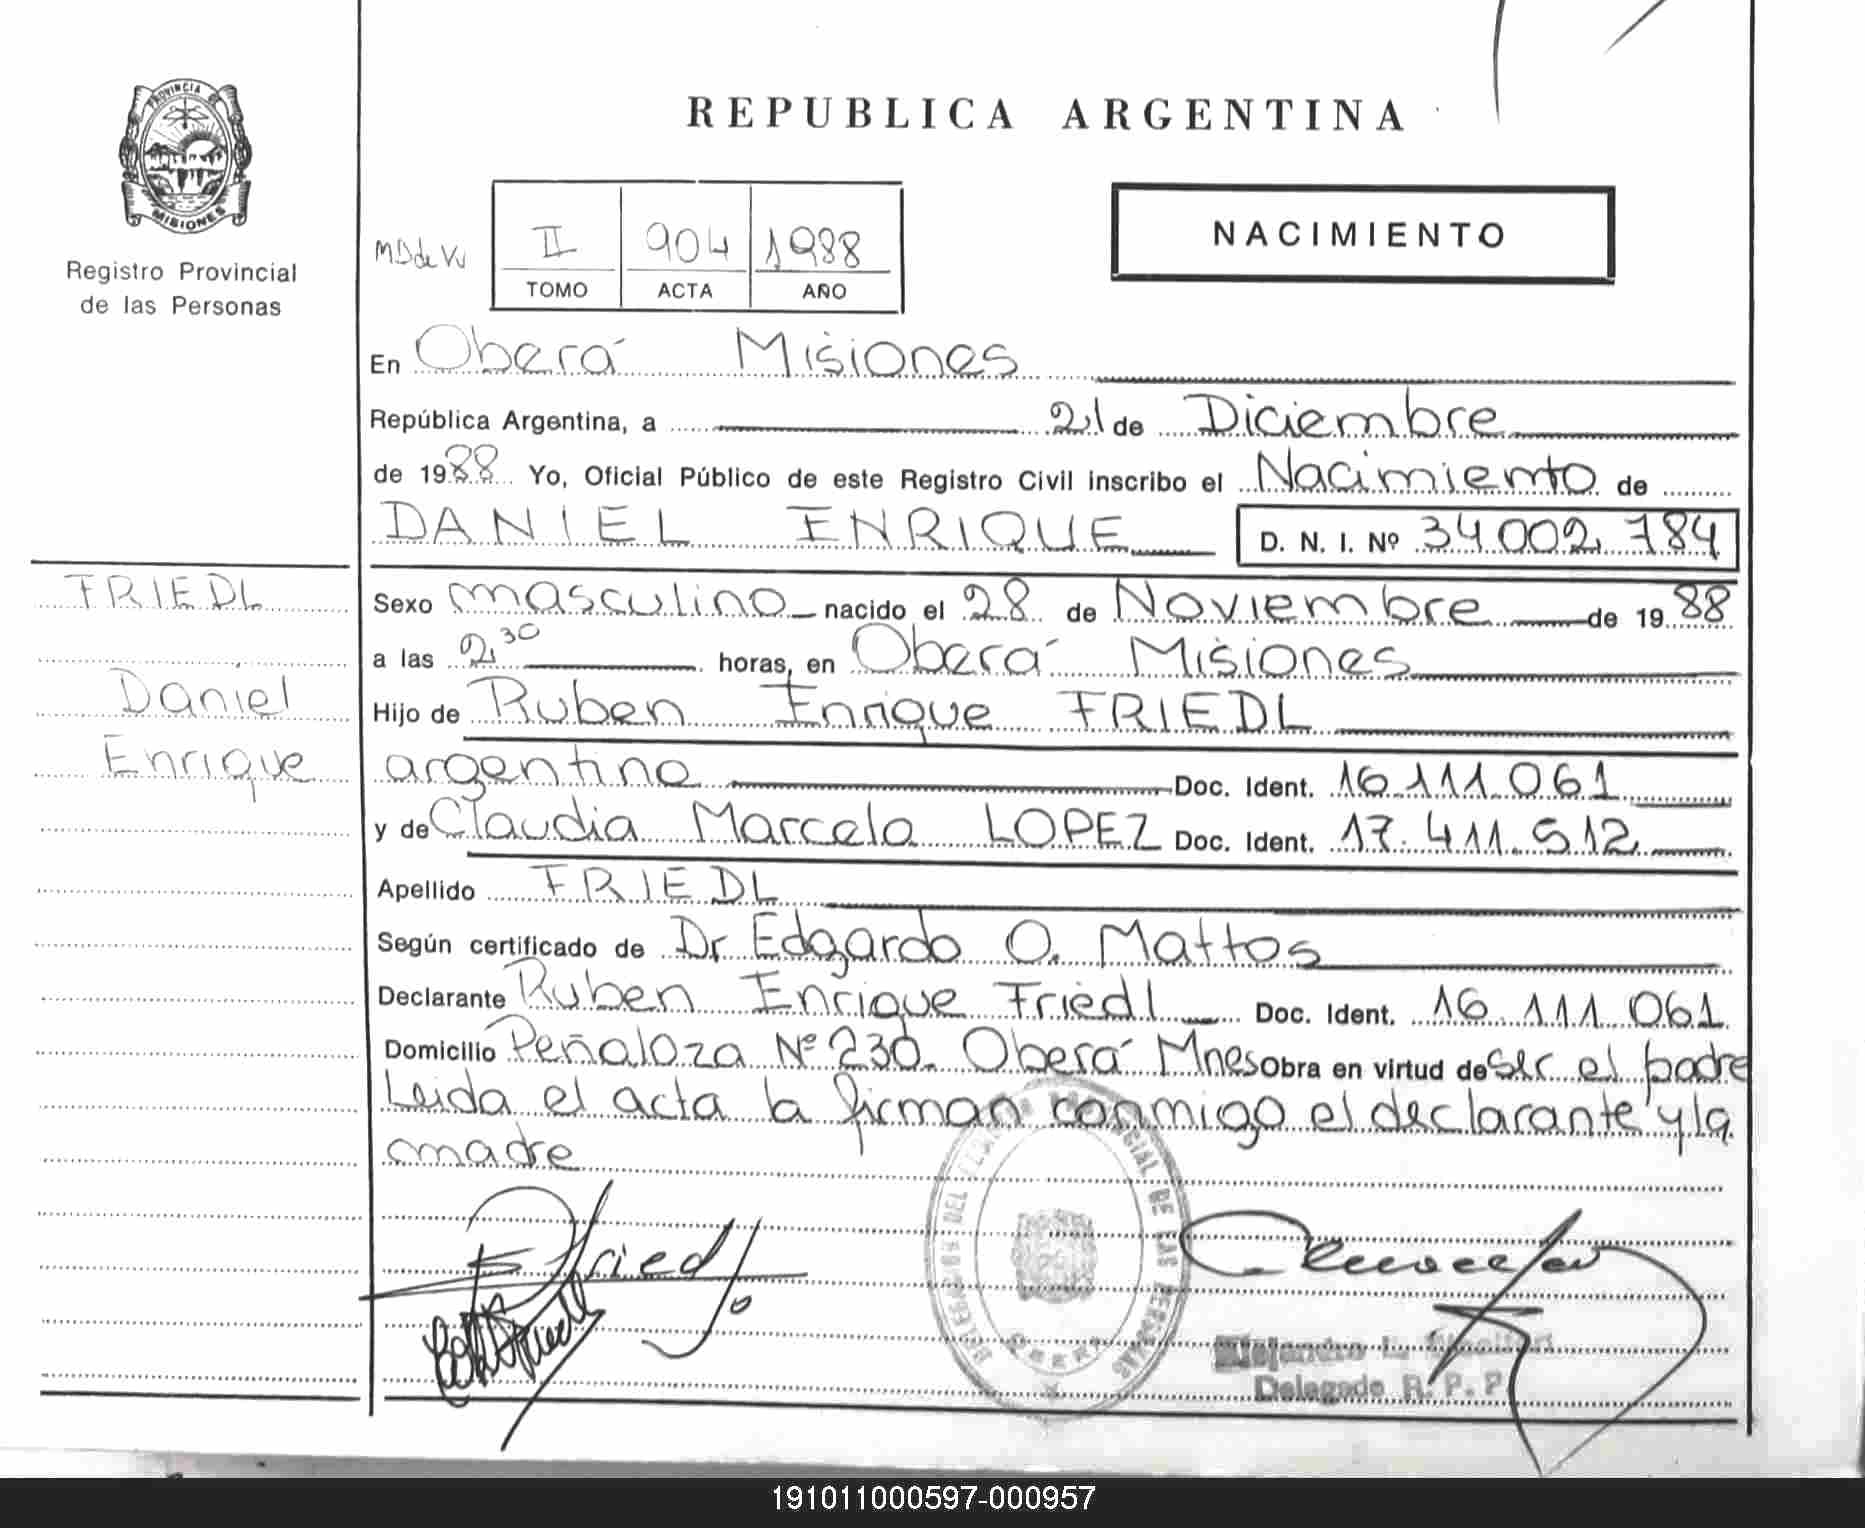 PROVINCIA DE
MISIONES
Registro Provincial
de las Personas
REPUBLICA ARGENTINA
MD de Vu
II 904 1988
TOMO ACTA AÑO
NACIMIENTO
En Oberá Misiones
República Argentina, a 21 de Diciembre
de 1988 Yo, Oficial Público de este Registro Civil inscribo el Nacimiento de
DANIEL ENRIQUE D. N. I. Nº 34 002 784
FRIEDL
Daniel
Enrique
Sexo masculino nacido el 28 de Noviembre de 1988
a las 2,30 horas, en Oberá Misiones
Hijo de Ruben Enrique FRIEDL
argentino Doc. Ident. 16 111 061
y de Claudia Marcela LOPEZ Doc. Ident. 17.411.512
Apellido FRIEDL
Según certificado de Dr. Edgardo O. Mattos
Declarante Ruben Enrique Friedl Doc. Ident. 16 111 061
Domicilio Peñaloza Nº 230. Oberá Mnes Obra en virtud de ser el padre
Leida el acta la firman conmigo el declarante y la
madre
DEL REGISTRO PROVINCIAL DE LAS PERSONAS
OBERA
Delegado R. P. P.
191011000597-000957